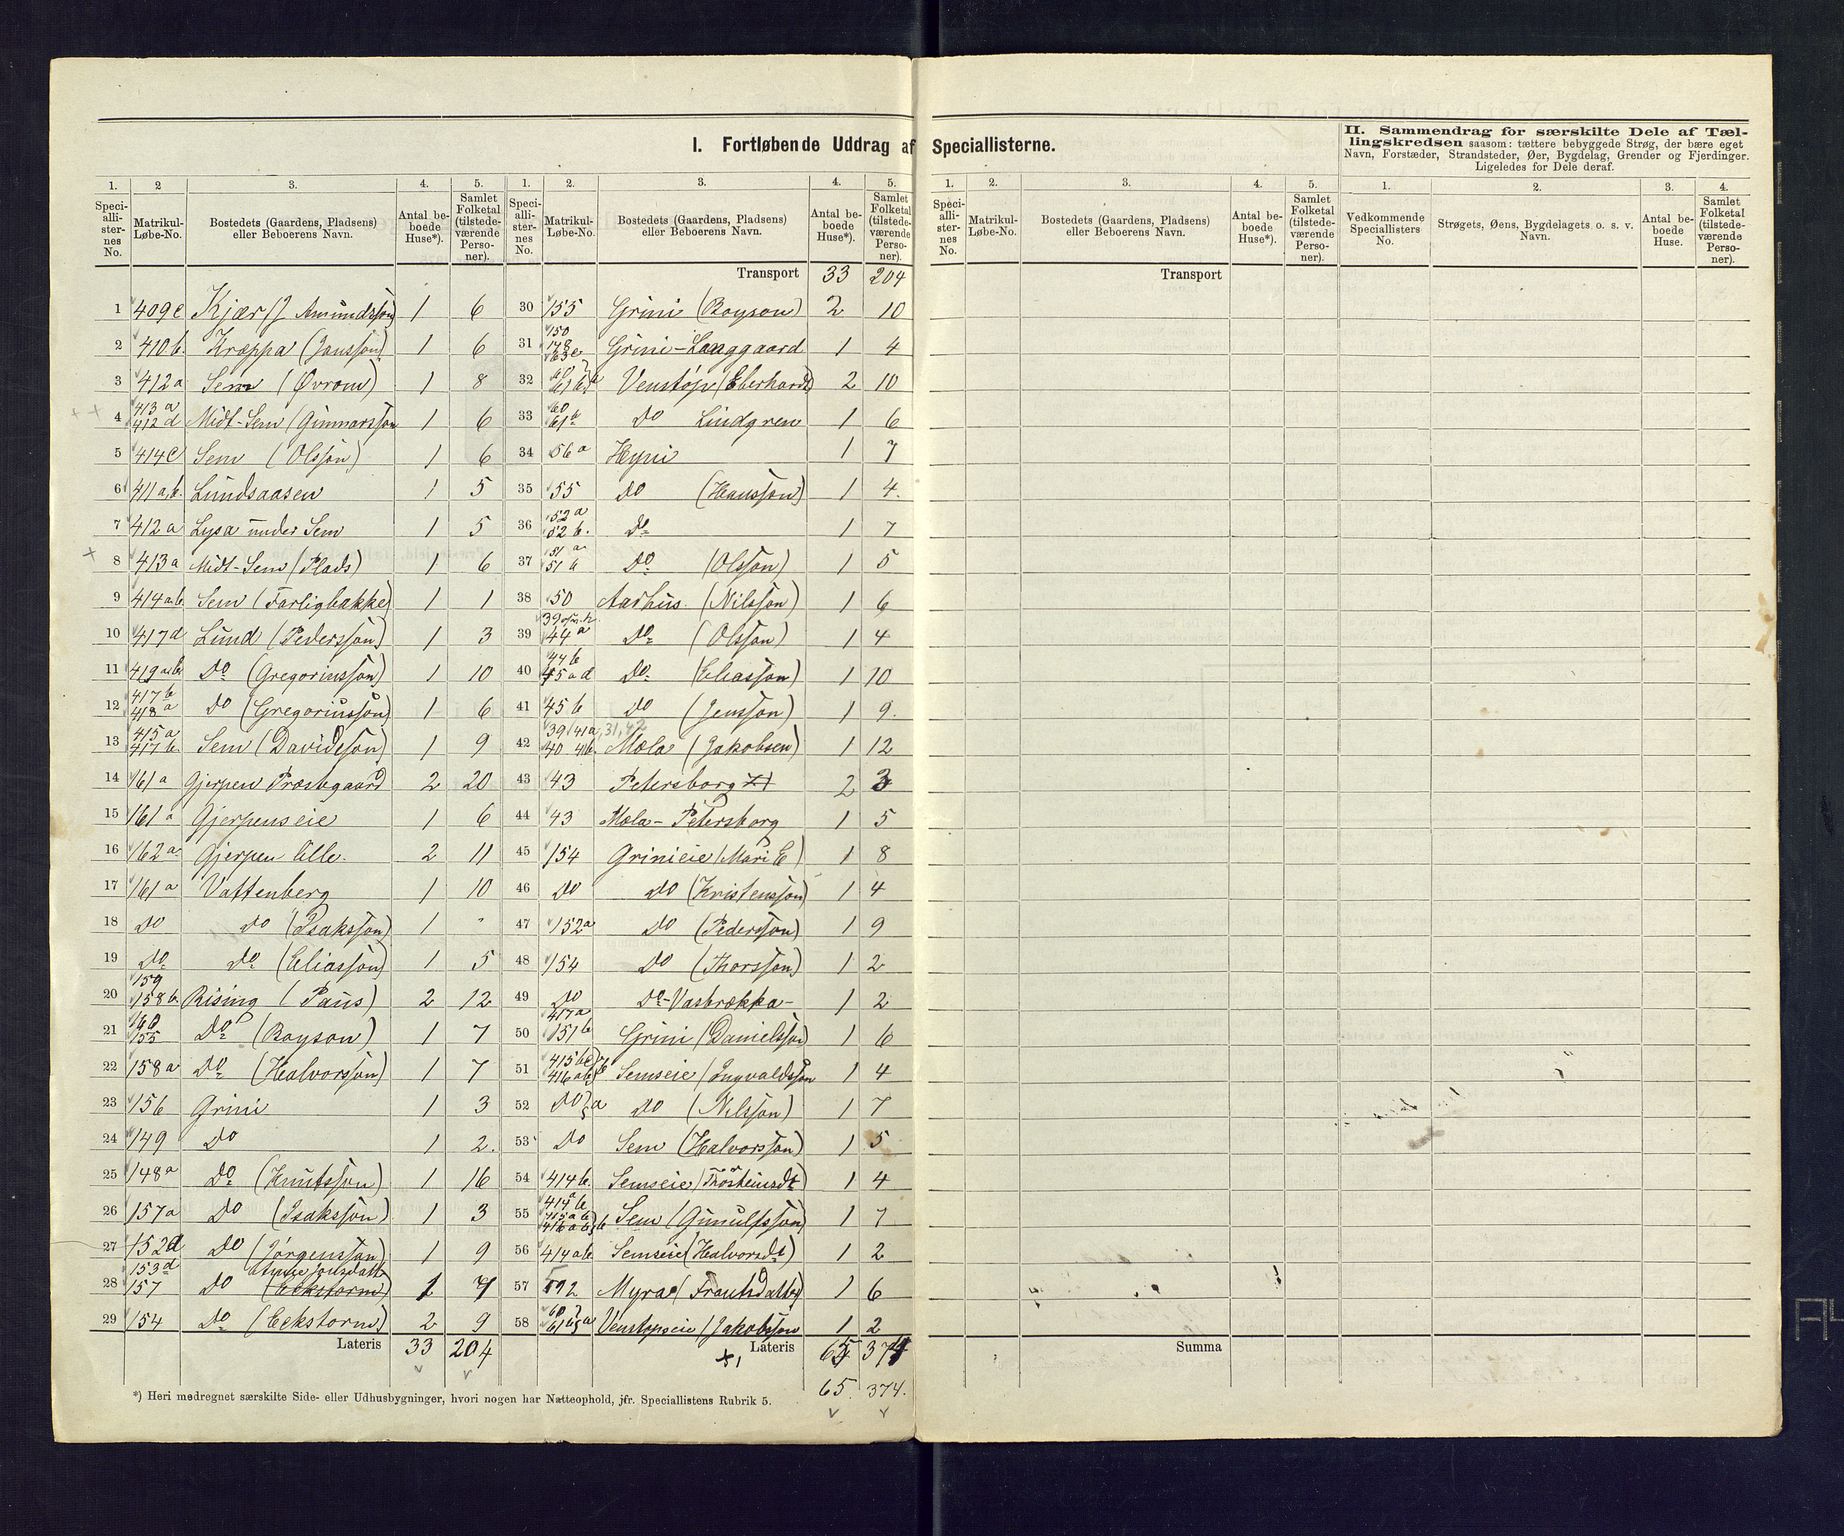 I. Fortløbende Uddrag af Speciallisterne.
II. Sammendrag for særskilte Dele af Tællingskredsen saasom: tættere bebyggede Strøg, der bære eget
Navn, Forstæder, Strandsteder, Øer, Bygdelag, Grender og Fjerdinger.
Ligeledes for Dele deraf.
1. 2 3. 4. 5. 1. 2. 3. 4. 5. 1. 2. 3. 4. 5. 1. 2. 3. 4.
Speciallisternes No. Matrikul-Løbe-No. Bostedets (Gaardens, Pladsens) eller Beboerens Navn. Antal beboede Huse*). Samlet Folketal (tilstedeværende Personer).
Speciallisternes No. Matrikul-Løbe-No. Bostedets (Gaardens, Pladsens) eller Beboerens Navn. Antal beboede Huse*). Samlet Folketal (tilstedeværende Personer).
Speciallisternes No. Matrikul-Løbe-No. Bostedets (Gaardens, Pladsens) eller Beboerens Navn. Antal beboede Huse*). Samlet Folketal (tilstedeværende Personer).
Vedkommende Speciallisters No. Strøgets, Øens, Bygdelagets o. s. v. Navn. Antal beboede Huse. Samlet Folketal (tilstedeværende Personer).
1 409c Kjær (J Amundssøn) 1 6
2 410b. Kræppa (Janssøn) 1 6
3 412a Sem (Øvrom) 1 8
4 413a 412d Midt-Sem (Gunnarssøn 1 6
5 414c Sem (Olssøn) 1 6
6 411a,b. Lundsaasen 1 5
7 412a Lysa under Sem 1 5
8 413a Midt-Sem (Plads) 1 6
9 414a,b. Sem (Farligbakke) 1 1
10 417d Lund (Pederssøn) 1 3
11 419a,b. Do (Gregoriussøn) 1 10
12 417b 418a Do (Gregoriussøn) 1 6
13 415a 417b. Sem (Davidssøn) 1 9
14 161a Gjerpen Præstegaard 2 20
15 161a Gjerpenseie 1 6
16 162a Gjerpen Lille. 2 11
17 161a Vattenberg 1 10
18 Do Do (Isakssøn) 1 "
19 Do Do (Eliassøn) 1 5
20 159 158b. Rising (Paus) 2 12
21 160 155 Do (Boyson) 1 7
22 158a Do (Halvorssøn) 1 7
23 156 Grini 1 3
24 149 Do 1 2.
25 148a Do (Knutssøn) 1 16
26 157a Do (Isakssøn) 1 3
27 152d Do (Jørgenssøn) 1 9
28 153d 157 Do Anne Jonsdatt (Eckstorm) 1 7
29 154 Do (Eckstorm) 2 9
Lateris 33 204
Transport 33 204
30 155 Grini (Boyson) 2 10
31 150 178 63c Grini-Langgaard 1 4
32 60 61b a Venstøp (Eberhardt) 2 10
33 60 61b Do Lindgren 1 6
34 56a Hyni 1 7
35 55 Do (Hanssøn) 1 4.
36 52a 52b. Do 1 7
37 51a 51b Do (Olssøn) 1 5
38 50 Aarhus. (Nilssøn) 1 6
39 44a Do (Olssøn) 1 4
40 44b 45ad Do (Eliassøn) 1 10
41 45b Do (Jenssøn) 1 9.
42 39 41a, 31,42 40 41b. Mæla (Jakobsen) 1 12
43 43 Petersborg 2 3
44 43 Mæla-Petersborg 1 5
45 154 Grinieie (Mari E) 1 8
46 Do Do (Kristenssøn) 1 4
47 152a Do (Pederssøn) 1 9
48 154 Do (Thorssøn) 1 2
49 Do Do-Vasbrækka- 1 2
50 417a 151b Grini (Danielssøn) 1 6
51 415bc 416ab Semseie (Ingvaldssøn 1 4
52 Do a Do (Nilssøn) 1 7
53 Do Sem (Halvorssøn) 1 5
54 414b. Semseie (Thosteinsdt 1 4
55 414a b 415a b 416a b b Sem (Gunulfssøn) 1 7
56 414ab. Semseie (Halvorsdt) 1 2
57 192 Myra (Frantsdatter) 1 6
58 60 61b a Venstøpseie (Jakobssøn 1 2
+1 Lateris 65 374
65. 374.
Transport
Summa
*) Heri medregnet særskilte Side- eller Udhusbygninger, hvori nogen har Natteophold, jfr. Speciallistens Rubrik 5.